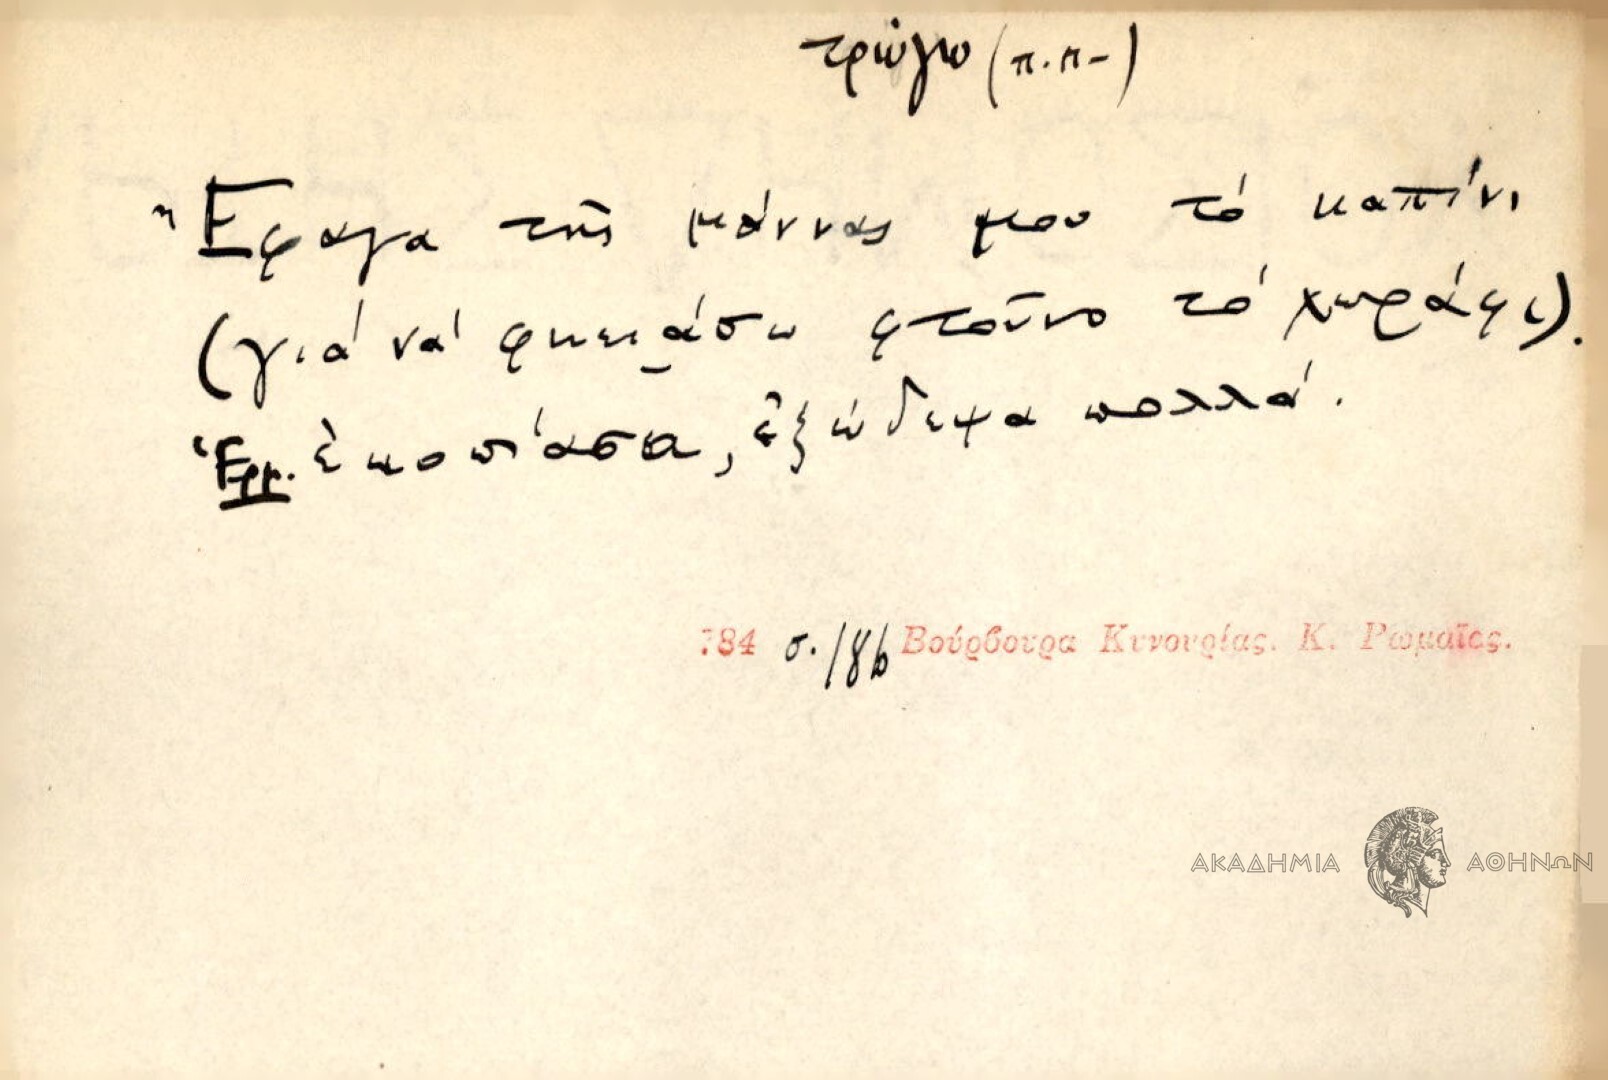 τρώγω (π.π-)
Ἔφαγα τῆς μάννας μου τό καπίνι
(γιά νά φκειάσω φτοῦνο τό χωράφι).
Ἑρμ. ἐκοπίασα, ἐξώδεψα πολλά.
784 σ. 186 Βούρβουρα Κυνουρίας. Κ. Ρωμαῖος.
ΑΚΑΔΗΜΙΑ ΑΘΗΝΩΝ